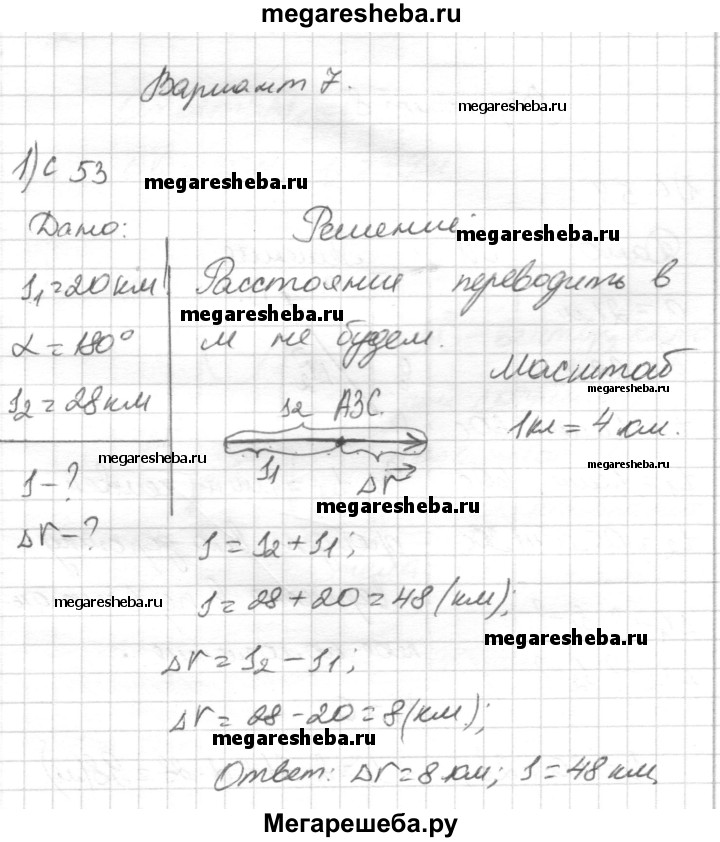 megaresheba.ru
Вариант 7.
megaresheba.ru
1) С 53
megaresheba.ru
Дано:
Решение:
megaresheba.ru
S₁=20 км
Расстояние переводить в
megaresheba.ru
α = 180°
м не будем.
Масштаб
megaresheba.ru
S₂=28 км
S₂ АЗС.
1 кл = 4 км.
megaresheba.ru
megaresheba.ru
S - ?
S₁
Δr
megaresheba.ru
Δr - ?
S = S₂ + S₁;
megaresheba.ru
S = 28 + 20 = 48 (км);
megaresheba.ru
Δr = S₂ - S₁;
Δr = 28 - 20 = 8 (км);
megaresheba.ru
Ответ: Δr = 8 км; S = 48 км
Мегарешеба.ру